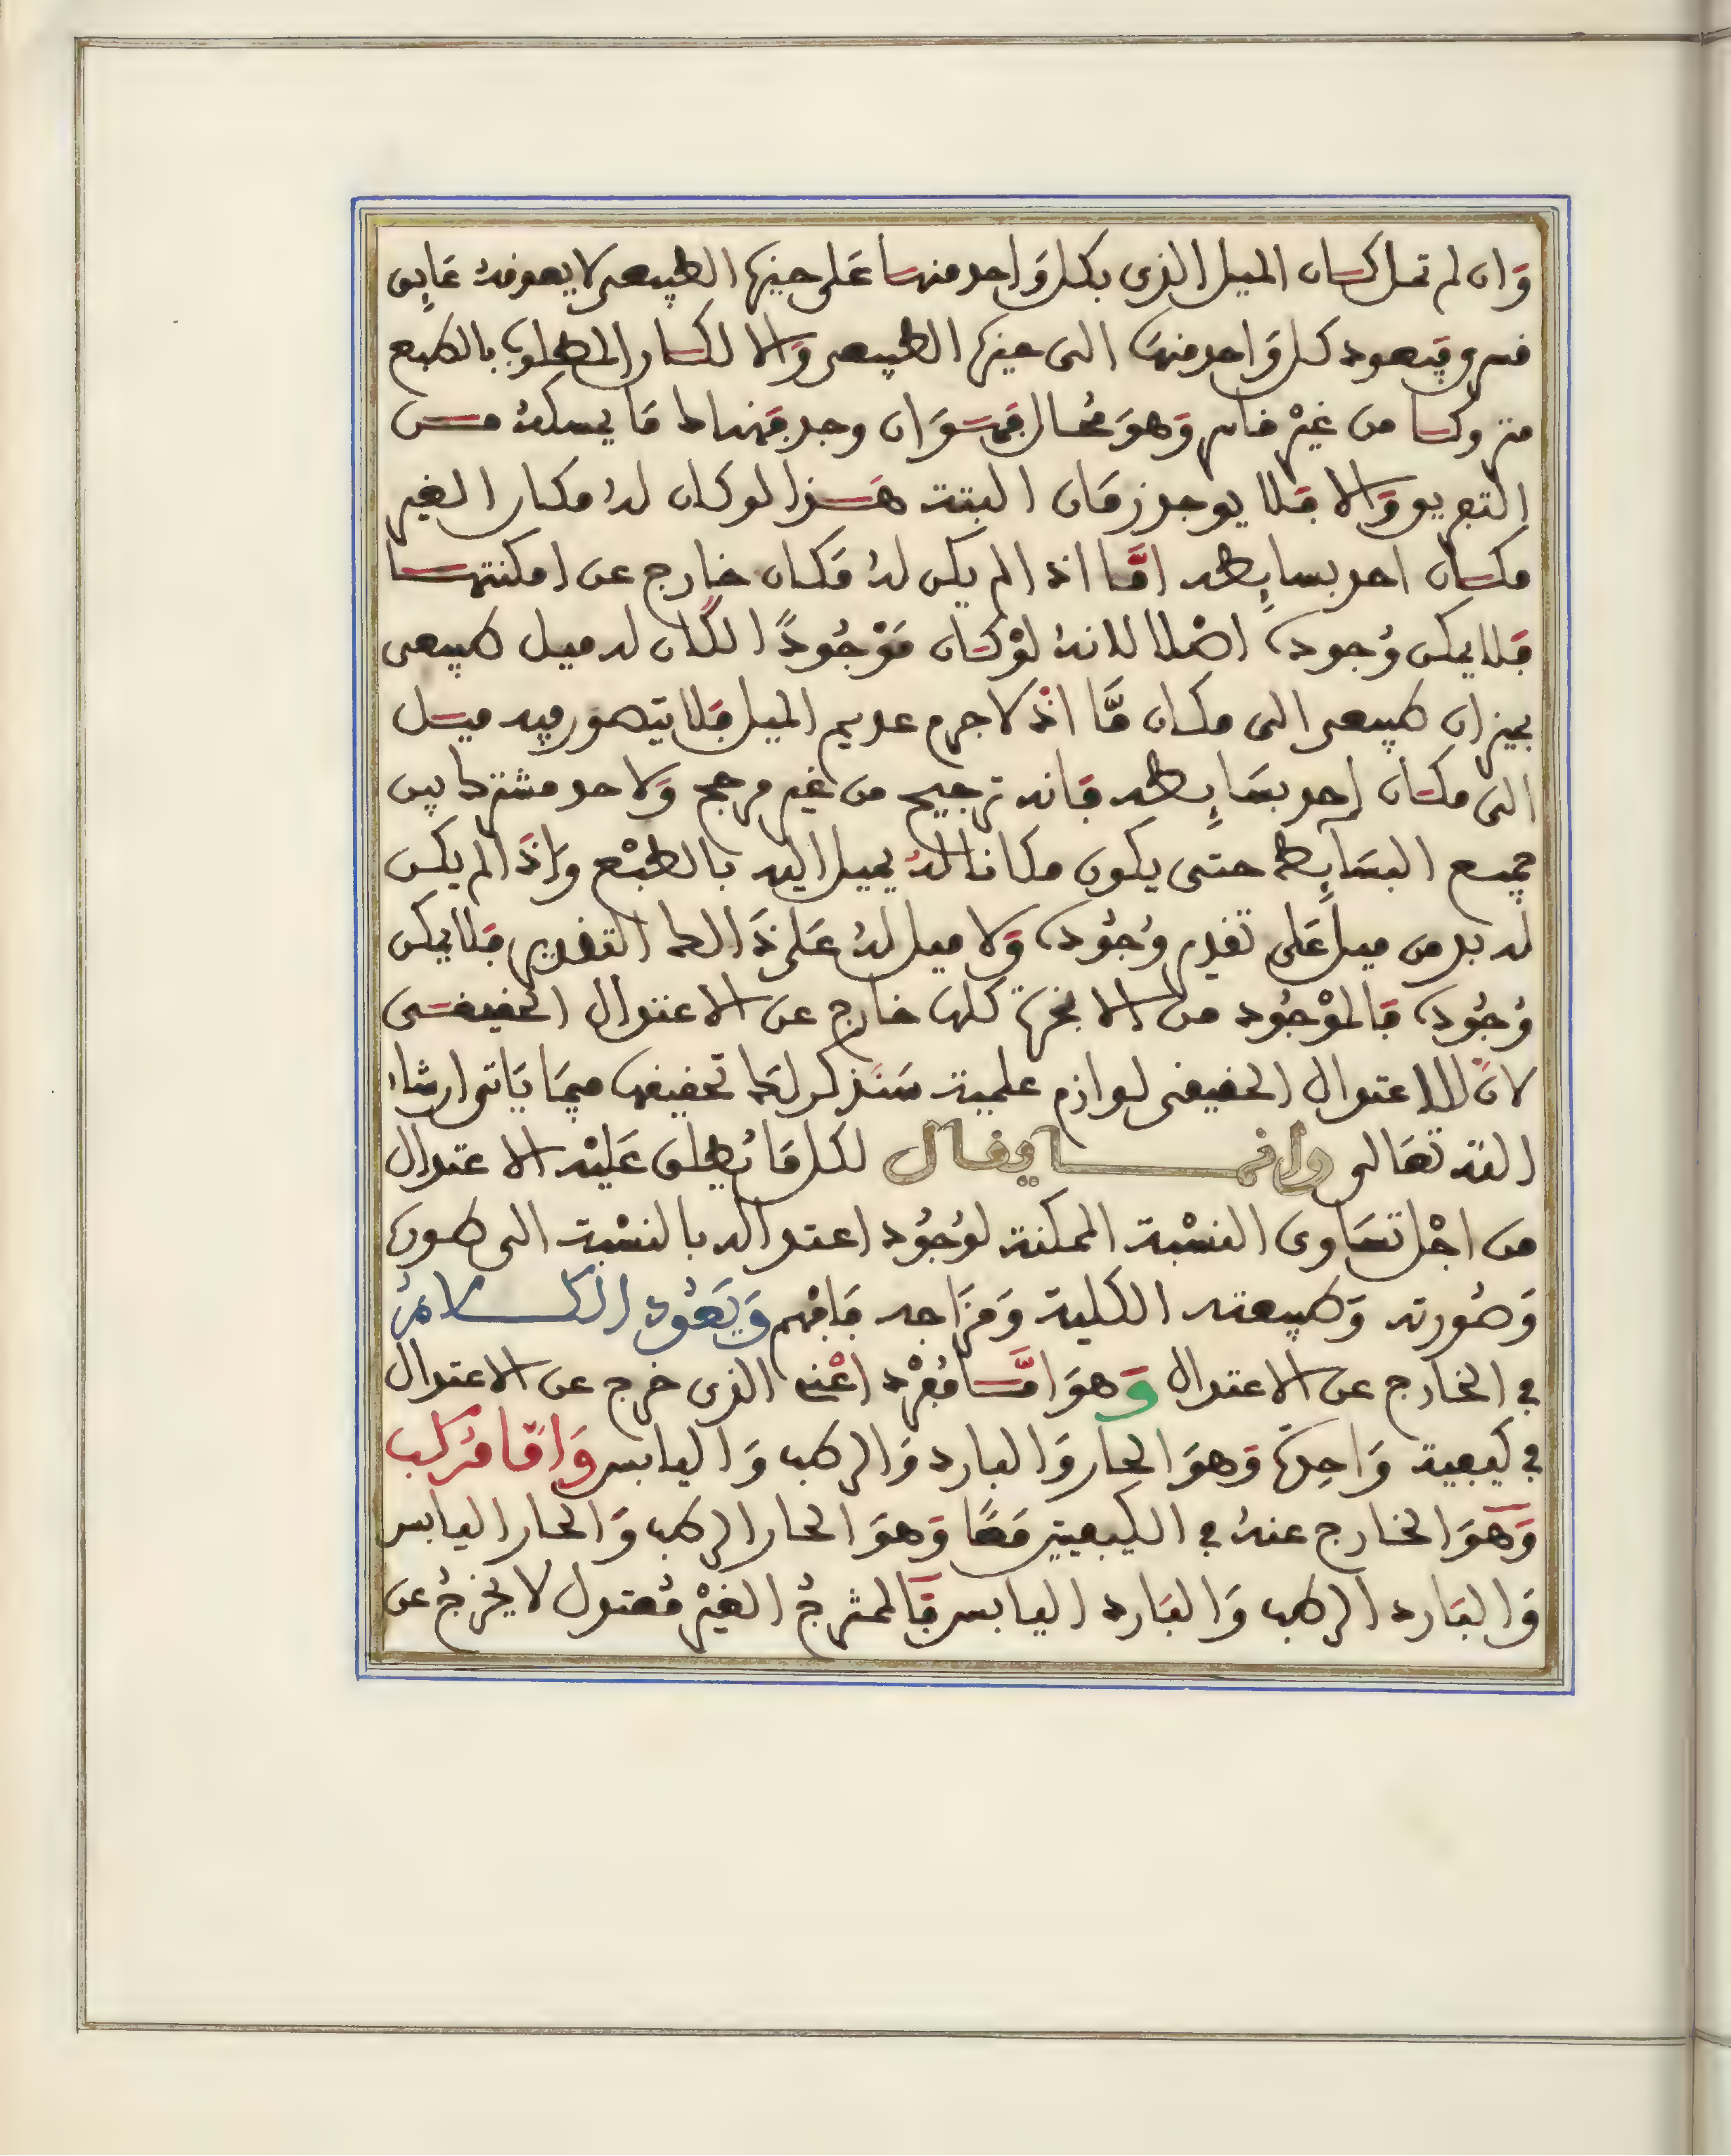 وَان لم تمل لكان الميل الذى بكل وَاحد منها عَلى حيزها الطبيعى لا يعوقهُ عَايِق
قسرى وَيعود كل وَاحد منهَا الى حيزها الطبيعى وَالا لكان المطلوب بالطبع
متروكا من غيْر قاسر وَهوَ مُحال فهَوَ ان وجد فهناك مَا يمسكهُ مـن
التفريق وَالا فلا يوجد زمَان البتة هَـذا لو كان لهُ مكان الغير
مكان احد بسايِطه امَّا اذا لم يكن لهُ مَكان خارج عن امكنتها
فَلا يمكن وُجوده اصْلا لانهُ لوْ كان مَوْجُودًا لكان له ميل طبيعى
بحيز ان طبيعى الى مكان مَّا اذْ لا جرم عديم الميل فَلا يتصور فيه ميل
الى مكان احد بسَايِطه فَانه ترجيح من غير مرجح وَلا حد مشترك بين
جميع البسَايِط حتى يكون مكانا لهُ يميل اليه بالطبْع وَاذَا لم يكن
له بد من ميل عَلى تقدير وُجُوده وَلا ميل لهُ عَلى ذَالك التقدير فَلا يمكن
وُجُوده فَالموْجُود من الابخرة كلها خارج عن الاعتدال الحقيقى
لانَّ للاعتدال الحقيقى لوازم علمية سَنَذكر لك تحقيقها فيمَا يَاتى ان شاء
الله تعَالى وانمـا يقال لكل مَا يُطلق عَليْه الاعتدال
من اجْل تسَاوى النسْبة الممكنة لوُجُود اعتداله بالنسْبة الى طوره
وَصُورته وَطبيعته الكلية وَمزَاجه فَافهم وَيَعُود الكـلامُ
في الخارج عن الاعتدال وَهوَ امَّا مُفرْد اعْنى الذى خرج عن الاعتدال
في كيفية وَاحِدة وَهوَ الحار وَالبارد وَالرطب وَاليابس وَامَّا مُرَكب
وَهَوَ الخارج عنهُ في الكيفيتين مَعًا وَهوَ الحار الرطب وَالحار اليابس
وَالبَارد الرطب وَالبَارد اليابس فَالممتزجُ الغيْر مُعتدل لا يخرجُ عن